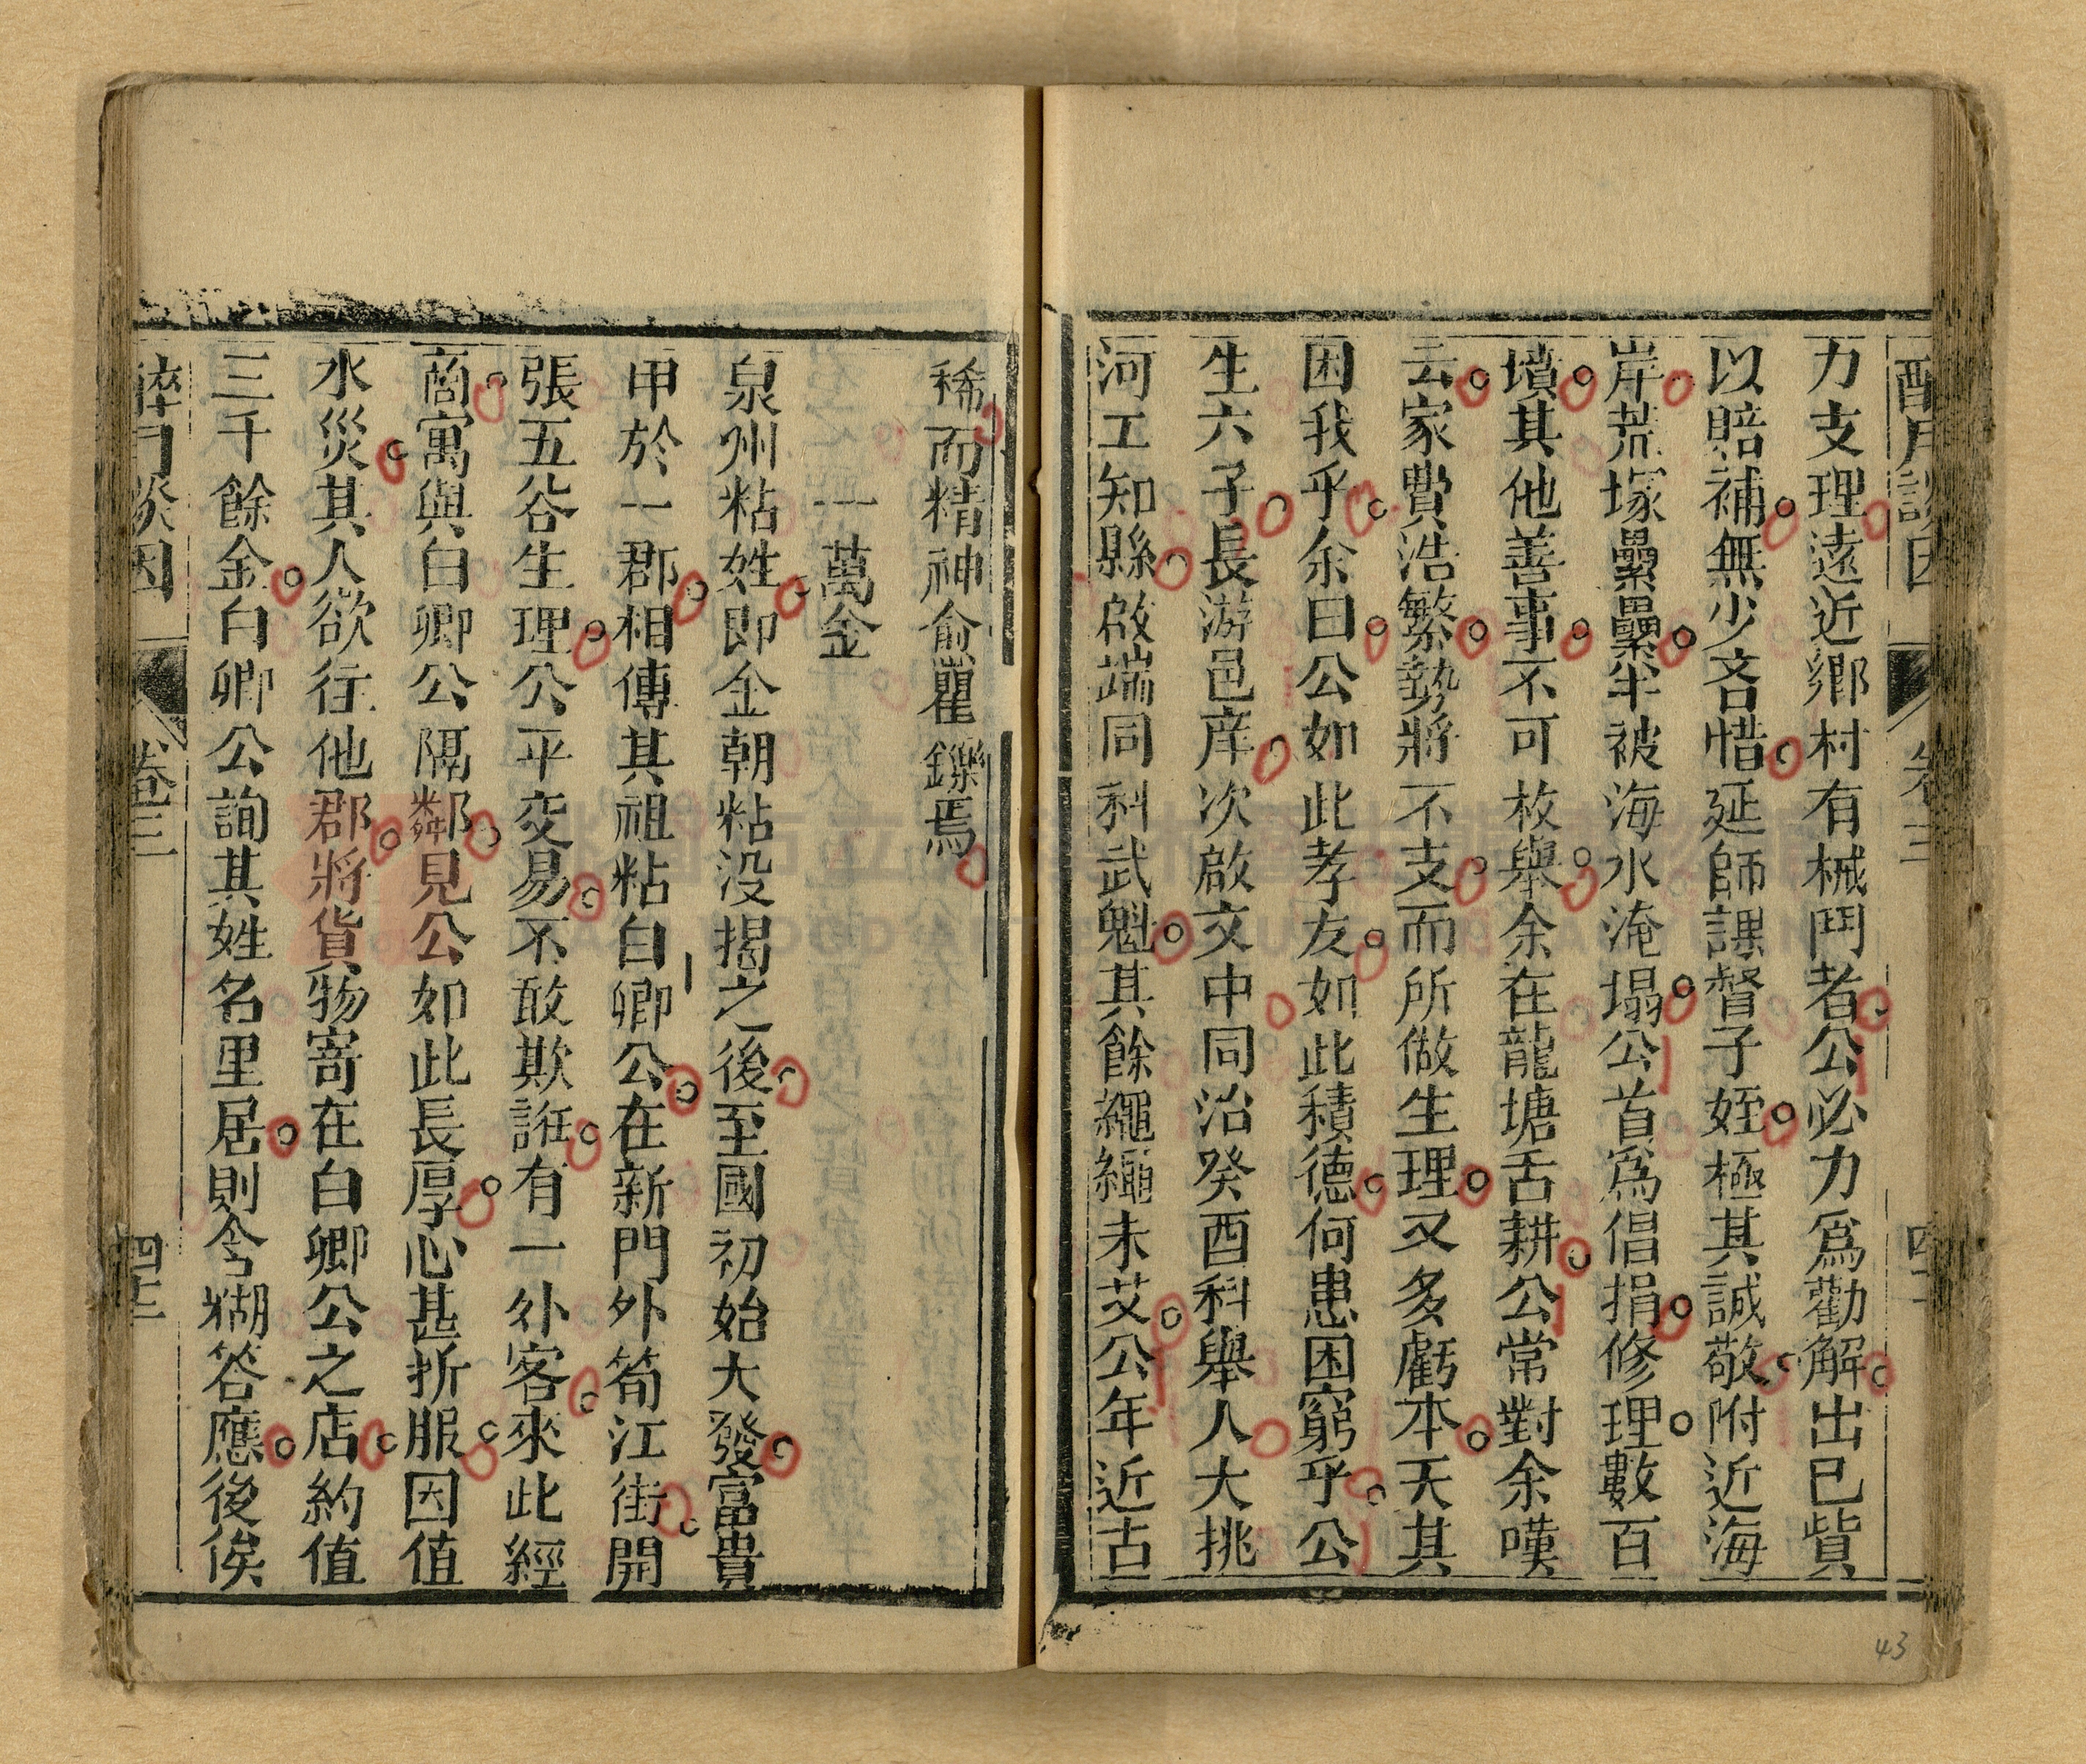 力支理遠近鄉村有械鬥者公必力爲勸解出已貲
以賠補無少吝惜延師課督子姪極其誠敬附近海
岸荒塚纍纍半被海水淹塌公首爲倡捐修理數百
墳其他善事不可枚舉余在龍塘舌耕公常對余嘆
云家費浩繁勢將不支而所做生理又多虧本天其
困我乎余曰公如此孝友如此積德何患困窮乎公
生六子長游邑庠次啟文中同治癸酉科舉人大挑
河工知縣啟端同科武魁其餘繩繩未艾公年近古
稀而精神俞矍鑠焉
一萬金
泉州粘姓即金朝粘没揭之後至國初始大發富貴
甲於一郡相傳其祖粘白卿公在新門外筍江街開
張五谷生理公平交易不敢欺誑有一外客來此經
商寓與白卿公隔鄰見公如此長厚心甚折服因值
水災其人欲往他郡將貨物寄在白卿公之店約值
三千餘金白卿公詢其姓名里居則含糊答應後俟
卷三
四十三
43